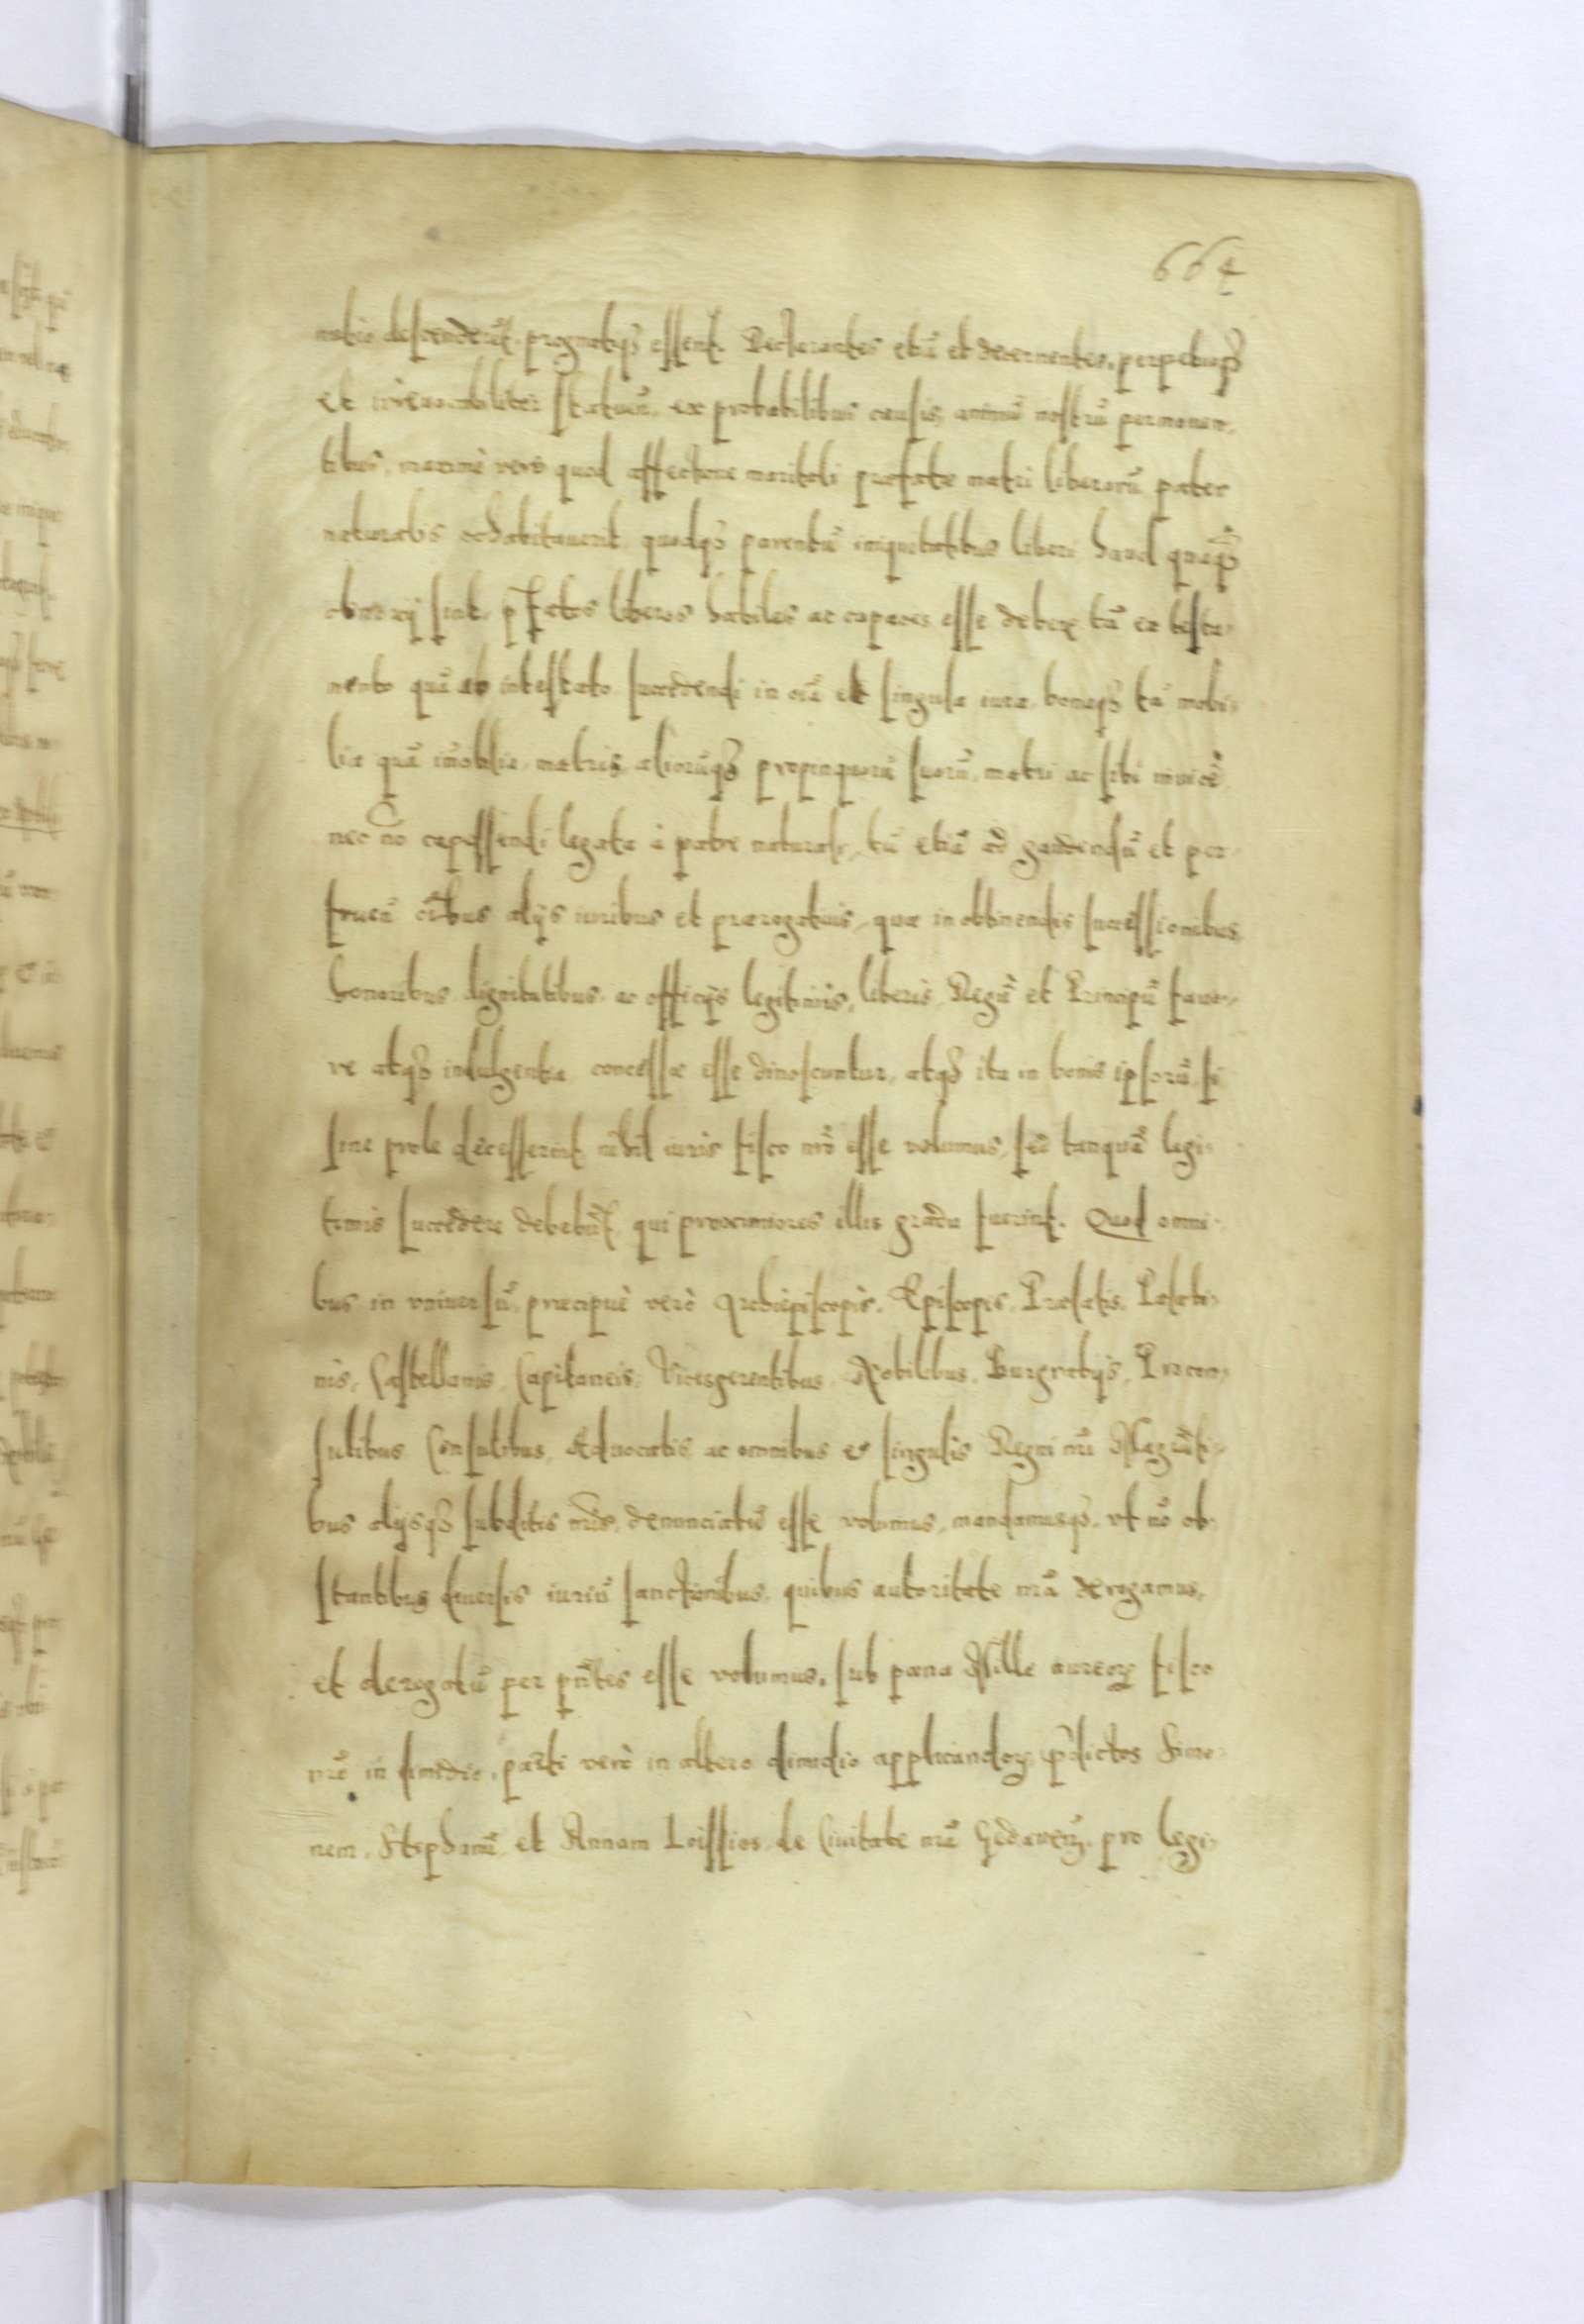 664
descenderūt, prognatiqȝ essent. Declarantes etiā et decernentes, perpetuoqȝ
et irreuocabiliter ex probabilibus causis, animū nostrū permouen,
tibus, maximè verò quod affectione maritali præfatæ matri liberorū pater
naturalis cohabitauerit, quodqȝ parentū iniquitatibus liberi haud
obnoxij sint, liberos habiles ac capaces esse debere, tā ex testa,
mento quā ab intestato succedendi in oīa et singula iura, bonaqȝ tā mobi,
lia quā īmobilia, matris, aliorūqȝ propinquorū suorū, matri ac sibi inuicē,
nec nō capessendi legata à patre naturali, tū etiā ad gaudendū et per
oībus alijs iuribus et prærogatiuis, quæ in obtinendis successionibus,
honoribus, dignitatibus, ac officijs legitimis, liberis, Regū et Principū fauo,
re atqȝ indulgentia concessæ esse dinoscuntur, atqȝ ita in bonis ipsorū, si
sine prole decesserint, nihil iuris fisco nrō esse volumus, sed tanquā legi,
timis succedere debebūt, qui proximiores illis gradu fuerint. Quod omni,
bus in vniuersū, præcipuè verò Archiepiscopis, Episcopis, Prælatis, Palati,
nis, Castellanis, Capitaneis, Vicesgerentibus, Nobilibus, Burgrabijs, Procon,
sulibus, Consulibus, Aduocatis, ac omnibus & singulis Regni nrī Magnāti,
bus alijsqȝ subditis nrīs, denunciatū esse volumus, mandamusqȝ, vt nō ob,
stantibus diuersis iuriū sanctionibus, quibus autoritate nrā derogamus,
et derogatū per pn̄tes esse volumus, sub pæna Mille aureorȝ fisco
nrō in dimidio, parti verò in altero dimidio applicandorȝ, p̄dictos Simo,
nem, Stephanū, et Annam Loissios, de Ciuitate nrā Gedanen̄. pro legi,